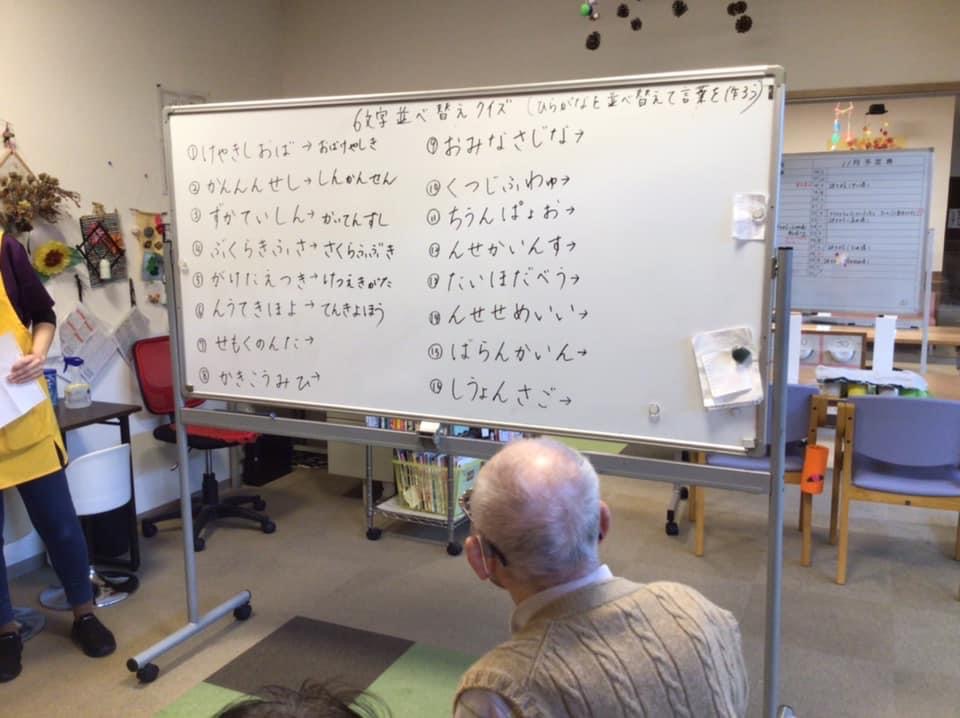 6文字並べ替えクイズ (ひらがなを並べ替えて言葉を作ろう)
①けやきしおば→おばけやしき
②かんんんせし→しんかんせん
③ずかていしん→かいてんずし
④ぶくらきふさ→さくらふぶき
⑤がけたえつき→けつえきがた
⑥んうてきほよ→てんきよほう
⑦せもくのんた→
⑧かきこうみひ→
⑨おみなさじな→
⑩くつじふわゅ→
⑪ちうんぱょお→
⑫んせかいんす→
⑬たいほだべう→
⑭んせせめいい→
⑮ばらんかいん→
⑯しうょんさご→
11月予定表